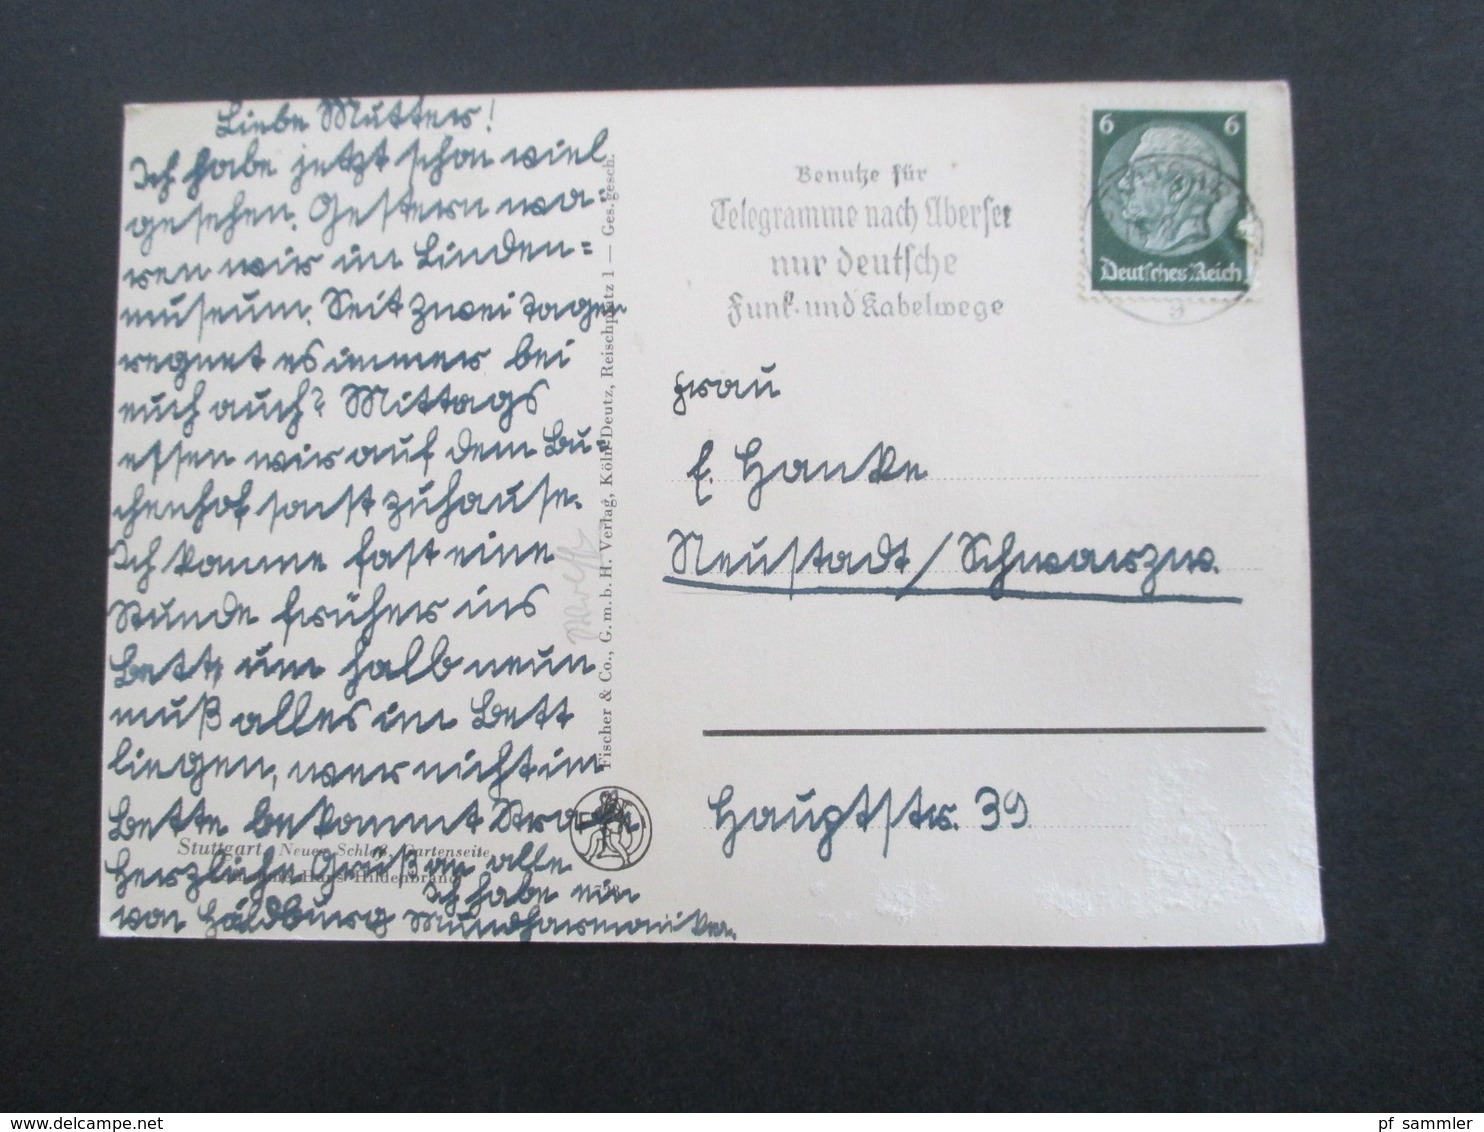 Liebe Mutter!
Ich habe jetzt schon viel
gesehen. Gestern wa-
ren wir im Linden-
museum. Seit zwei Tagen
regnet es immer bei
euch auch? Mittags
essen wir auf dem Bu-
chenhof sonst zuhause.
Ich komme fast eine
Stunde früher ins
Bett, um halb neun
muß alles im Bett
liegen, wer nicht im
Bette bekommt Strafe
Herzliche Grüße an alle
von
Ich habe ein
Mundharmonika.
Stuttgart, Neues Schloß, Gartenseite
Hans Hildenbrand
Fischer & Co., G. m. b. H. Verlag, Köln-Deutz, Reischplatz 1 — Ges. gesch.
Benutze für
Telegramme nach Übersee
nur deutsche
Funk- und Kabelwege
6 6
Deutsches Reich
Frau
E. Hanke
Neustadt/Schwarzw.
Hauptstr. 39
pf_sammler
www.delcampe.net